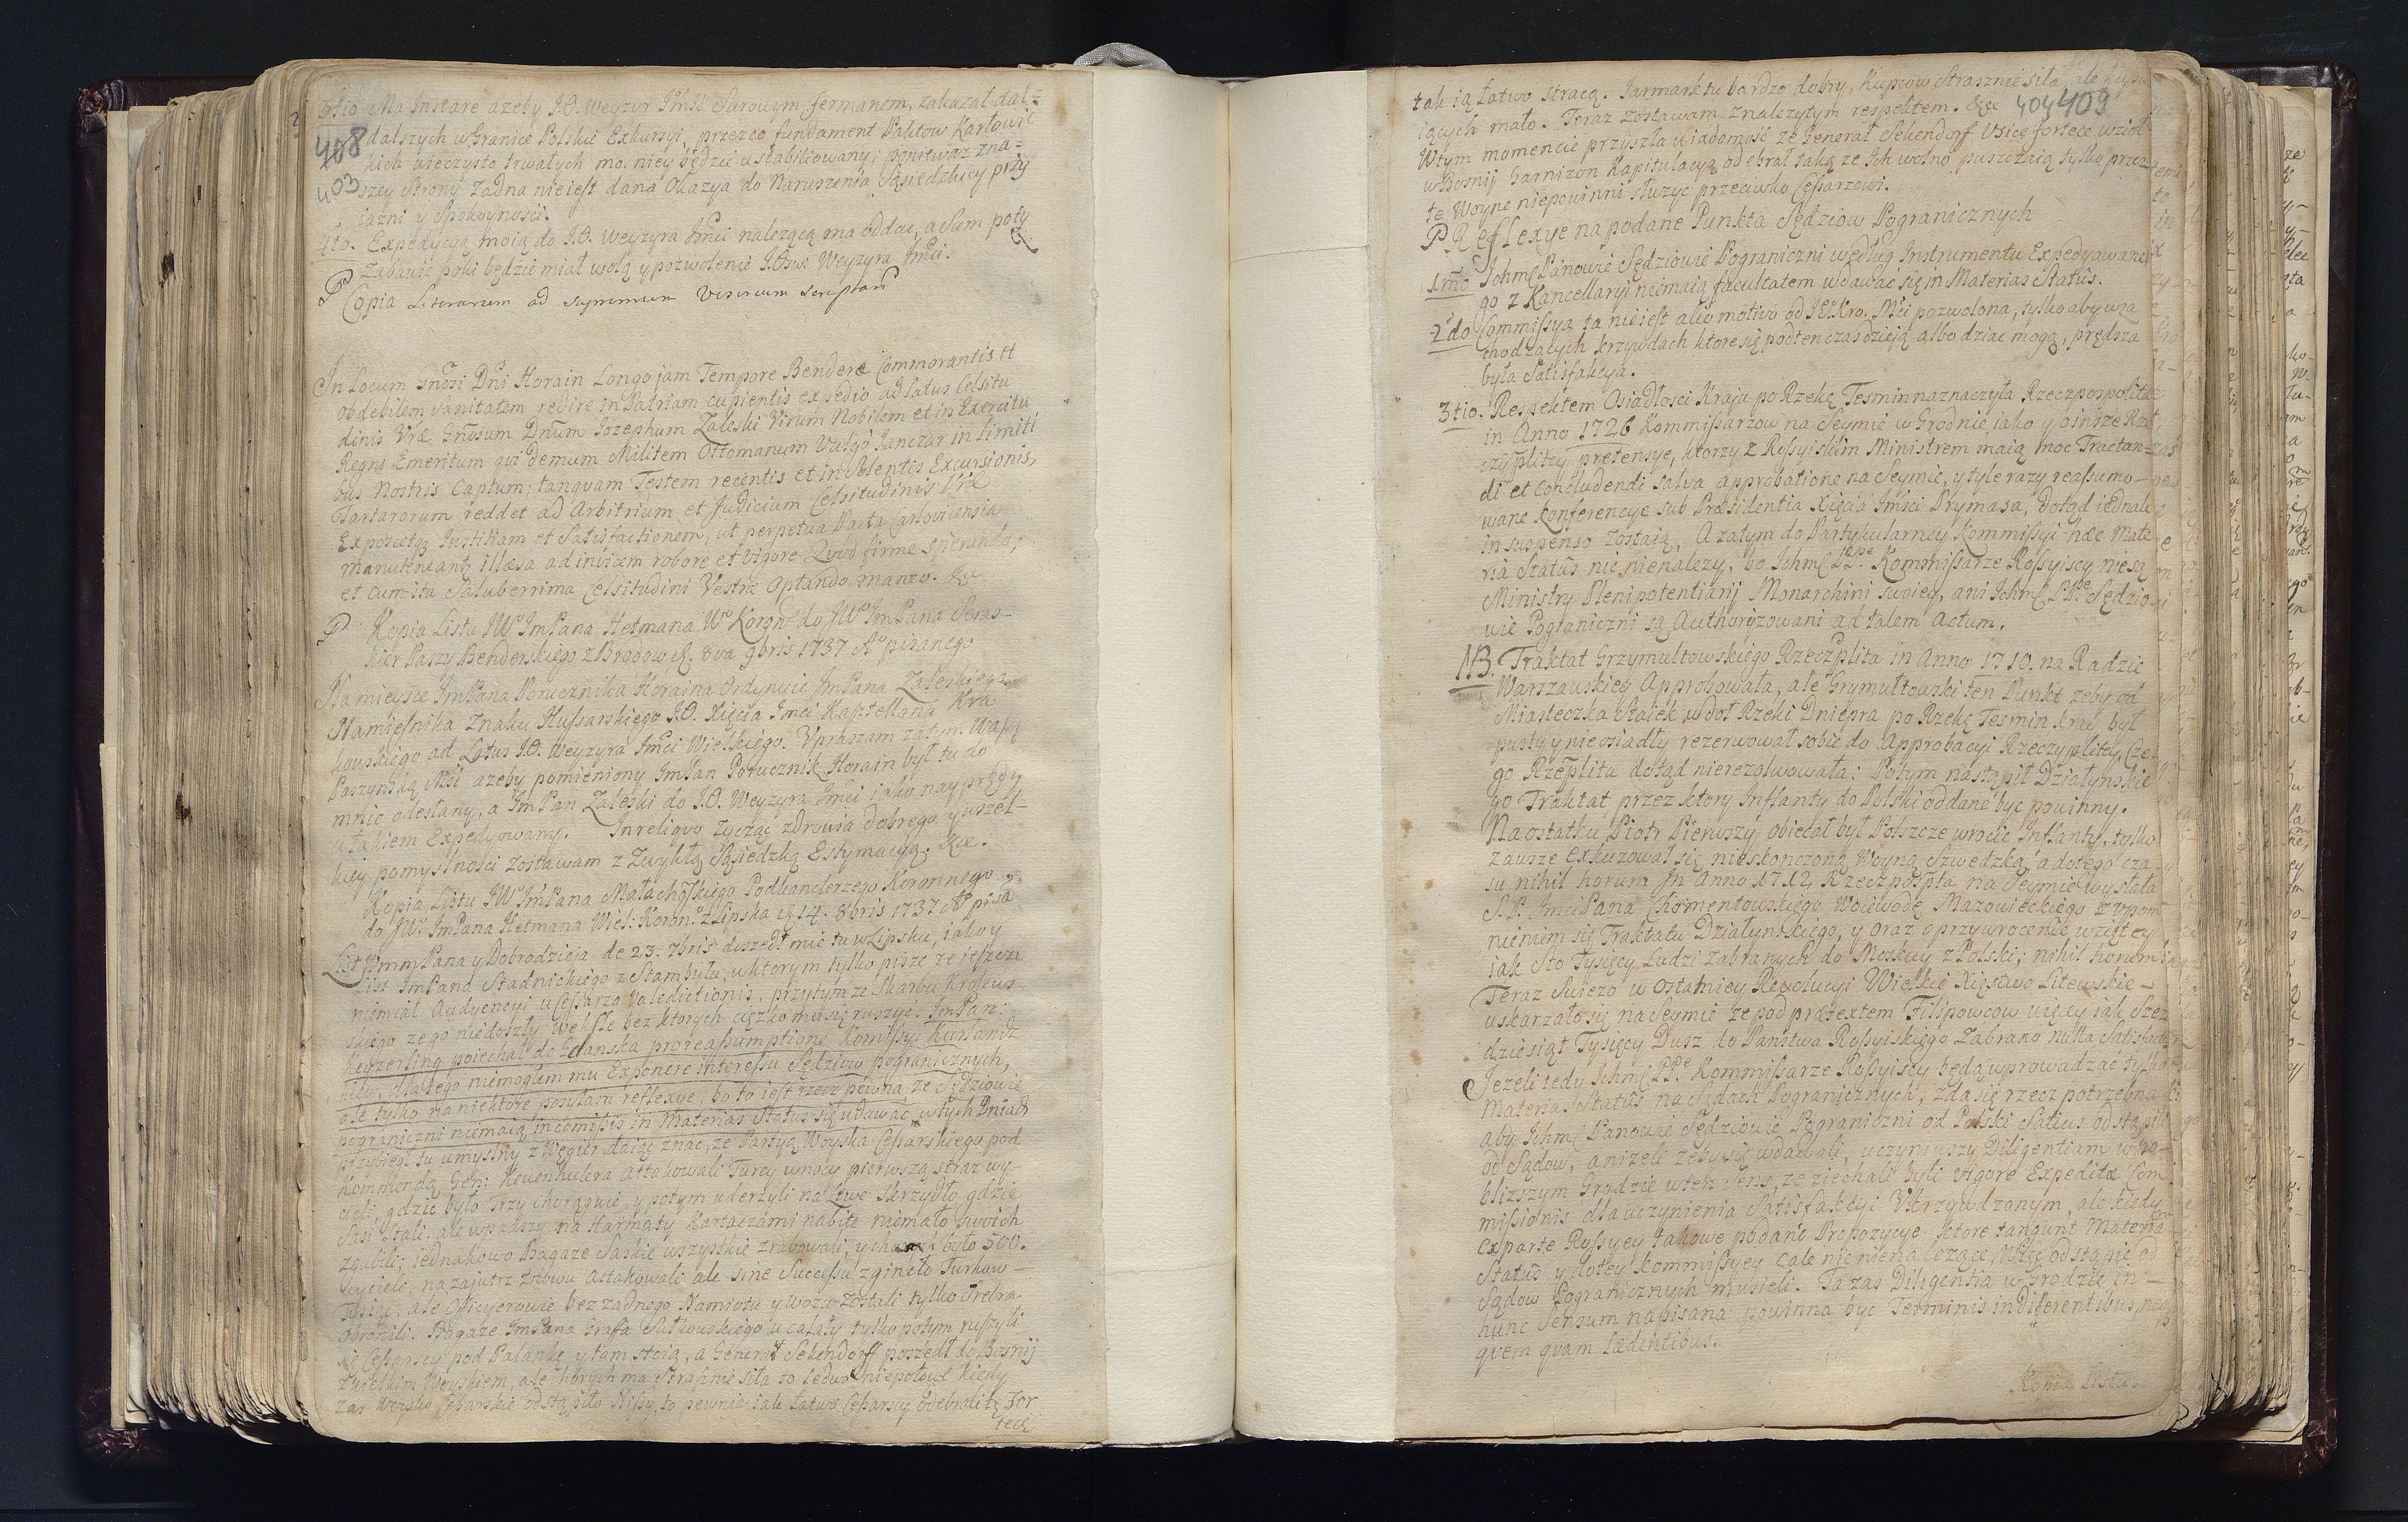 3tio Ma Instare azeby J.O. Weyzyr Jmść Surowym Fermanem, zakazał dal=
408 dalszych w Granice Polskie Exkursyi, przez co fundament Paktow Karłowic
kich wieczysto trwałych mocniey będzie ustabiliowany; poniewaz zna=
403 szey Strony żadna nieiest dana Okazya do Naruszenia Sąsiedzkiey przy
iazni y Spokoyności.
4to. Expedycyą moią do J.O. Weyzyra Jmści nalezącą ma oddać, a Sam poty
zabawic poki będzie miał wolą y pozwolenie J.Oświ Weyzyra Jmści.
Copia Literarum ad supremum Vesirum scriptarum
In Locum Gnosi Dni Horain Longo jam Tempore Benderæ Commorantis et
ob debilem Sanitatem redire in Patriam cupientis expedio ad Latus Celsitu
dinis Vræ Gnosum Dnum Iozephum Zaleski Virum Nobilem et in Exercitu
Regni Emeritum qui demum Militem Ottomanum Vulgo Janczar in Limiti
bus Nostris Captum; tanquam Testem recentis et insolentis Excursionis,
Tartarorum reddet ad Arbitrium et Judicium Celsitudinis Vræ
Exposcetq Iustitiam et Satisfactionem, ut perpetua Pacta Carlovicensia
manuteneant illæsa ad invicem robore et vigore Quod firme sperando,
et cum ita Saluberrima Celsitudini Vestræ Optando maneo. &c
Kopia Listu JWo ImPana Hetmana Wo Koronego do JWo ImPana Seras-
kier Paszy Benderskiego z Brodow d. 8va 9bris 1737 Ao pisanego
Na mieysce ImPana Porucznika Horaina Ordynuię ImPana Zaleskiego
Namiesnika Znaku Hussarskiego J.O. Xięcia Jmci Kasztellana Kra
kowskiego ad Latus J.O. Weyzyra Jmci Wielkiego. Upraszam zatym Waszą
Paszyńską Mść azeby pomieniony ImPan Porucznik Horain był tu do
mnie odesłany, a ImPan Zaleski do J.O. Weyzyra Jmci iako nayprędzy
w takiem Expedyowany. In reliquo życząc zdrowia dobrego y wszel-
kiey pomyslności zostawam z Zwykłą Sąsiedzką Estymacyą. &c.
Kopia Listu JW ImPana Małachoskiego Podkanclerzego Koronnego
do JWo ImPana Hetmana Wiel: Koron: z Lipska d. 14. 8bris 1737 Ao pisa
List Wmm Pana y Dobrodzieja de 23. 7bris doszedł mię tu w Lipsku, iako y
List ImPana Stadnickiego z Stambułu, w ktorym tylko pisze ze ieszcze
niemiał Audyencyi u Cesarza Valedictionis, przytym ze Skarbu Krolews
skiego ze go niedoszły wexle bez ktorych cięzko mu się ruszyć. ImPan:
Keyzerling poiechał do Gdanska pro reassumptione Komissyi Kurlandz
kiey, dla tego niemogłem mu Exponere interessu Sędziow pogranicznych,
ale tylko na niektore posyłam reflexye, bo to iest rzecz pewna ze Sędziowie
pograniczni niemaią in comissis in Materias Status się udawać, w tych Dniach
przybiegł tu umyslny z Węgier daiąc znac, ze Partyą Woyska Cessarskiego pod
Kommendą Gen: Kevenhulera attakowali Turcy w nocy pierwszą straz wy-
cieli, gdzie było Trzy Chorągwie, y potym uderzyli na Lewe Skrzydło, gdzie
Sasi Stali, ale wpadszy na Harmaty Kartaczami nabite niemało swoich
zgubili; iednakowo Bagaze Saskie wszystkie zrabowali, y chorych było 500.
wycieli; nazajutrz znowu attakowali ale sine Successu zgineło Turkow-
Tysiąc, ale Officyerowie bez zadnego Namiotu y wozu zostali tylko Srebra
obronili. Bagaze ImPana Graffa Sułkowskiego w całaty tylko potym ruszyli
się Cesarscy pod Palankę y tam stoią, a Generał Sekendorff poszedł do Bosnij
z wielkim Woyskiem, ale chorych ma Strasznie siła to Ledwo niepołowę Kiedy
zas Woysko Cesarskie odstąpiło Nissy, to pewnie iak łatwo Cessarscy odebrali tę For
tecę
tak ią łatwo stracą. Jarmark tu bardzo dobry, Kupcow Strasznie siła, ale kupu
iących mało. Teraz zostawam znalezytym respektem. &c 404 409
W tym momencie przyszła wiadomość ze Generał Sekendorf Vsice fortece wzioł
w Bosnij Garnizon Kapitulacyą odebrał taką ze Ich wolno puszczaią tylko przez
te Woynę niepowinni służyc przeciwko Cessarzowi.
Reflexye na podane Punkta Sędziow Pogranicznych
1mo Ichmć Panowie Sędziowie Pograniczni według Instrumentu Expedyowane
go z Kancellaryi niemaią facultatem wdawać się in Materias Status.
2do Commissya ta nieiest alio motivo od JEKro. Mści pozwolona, tylko aby w za
chodzących krzywdach ktore się podtenczas dzieią albo dziac mogą, prędsza
była Satisfakcya.
3tio. Respektem Osiadłości Kraju po Rzekę Tesmin naznaczyła Rzeczpospolita
in Anno 1726 Kommissarzow na Seymie w Grodnie iako y o insze Rze
czyplitey pretensye, ktorzy z Rossyiskim Ministrem maią moc Tractan=
di et Concludendi salva approbatione na Seymie, y tyle razy reassumo-
wane Konferencye sub Præsidentia Xięcia Jmści Prymasa, dotąd iednak
in suspenso zostaią. A zatym do Partykularney Kommissyi hæc Mate
ria Status nic nienalezy, bo Ichmć PPe Kommissarze Rossyiscy niesą
Ministry Plenipotentiarij Monarchini swoiey, ani Ichmć PPe Sędzio
wie Pograniczni są Authoryzowani ad talem Actum.
NB. Traktat Grzymultowskiego Rzeczplita in Anno 1710. na Radzie
Warszawskiey Approbowała, ale Grymułtowski ten Punkt zeby od
Miasteczka Staiek w doł Rzeki Dniepra po Rzekę Tesmin kray był
pusty y nie osiadły rezerwował sobie do Approbacyi Rzeczyplitey, Cze-
go Rzeplita dotąd nierezolwowała: Potym nastąpił Działynskie
go Traktat, przez ktory Inflanty do Polski oddane byc powinny.
Na ostatku Piotr Pierwszy obiecał był Polszcze wrocić Inflanty, tylko
zawsze exkuzował się nieskonczoną Woyną Szwedzką, a do tego cza
su nihil horum. In Anno 1712 Rzeczpospta na Seymie wysłała
S.P. Jmci Pana Chomentowskiego Woiewodę Mazowieckiego z vpom
nieniem się Traktatu Działynskiego, y oraz o przywrocenie wziętey
iak Sto Tysięcy Ludzi zabranych do Moskwy z Polski; nihil horum
Teraz swiezo w ostatniey Rewolucyi Wielkie Xięstwo Litewskie-
uskarzało się na Seymie ze pod prætextem Filipowcow więcey iak Szesz
dziesiąt Tysięcy Dusz do Panstwa Rossyiskiego Zabrano nulla Satisfactio
Jezeli tedy Ichmć PPe Kommissarze Rossyiscy będą wprowadzać tylko
Materias Status na Sądach Pogranicznych, zda się rzecz potrzebna
aby Ichmć Panowie Sędziowie Pograniczni od Polski Satius odstąpili
od Sądow, anizeli zeby się wdawali, uczyniwszy Diligentiam w po-
blizszym Grodzie w ten Sens, ze ziechali byli vigore Expeditæ Com
missionis dla uczynienia Satisfakcyi Ukrzywdzonym, ale kiedy
ex parte Rossyey takowe podane Propozycye ktore tangunt Materia
Status y do tey Kommissyey cale nie nienalezące, więc odstąpić od
Sądow Pogranicznych musieli. Ta zas Diligentia w Grodzie in-
hunc Sensum napisana powinna byc Terminis indiferentibus, neq
quem quam Lædentibus.
Kopia Listu